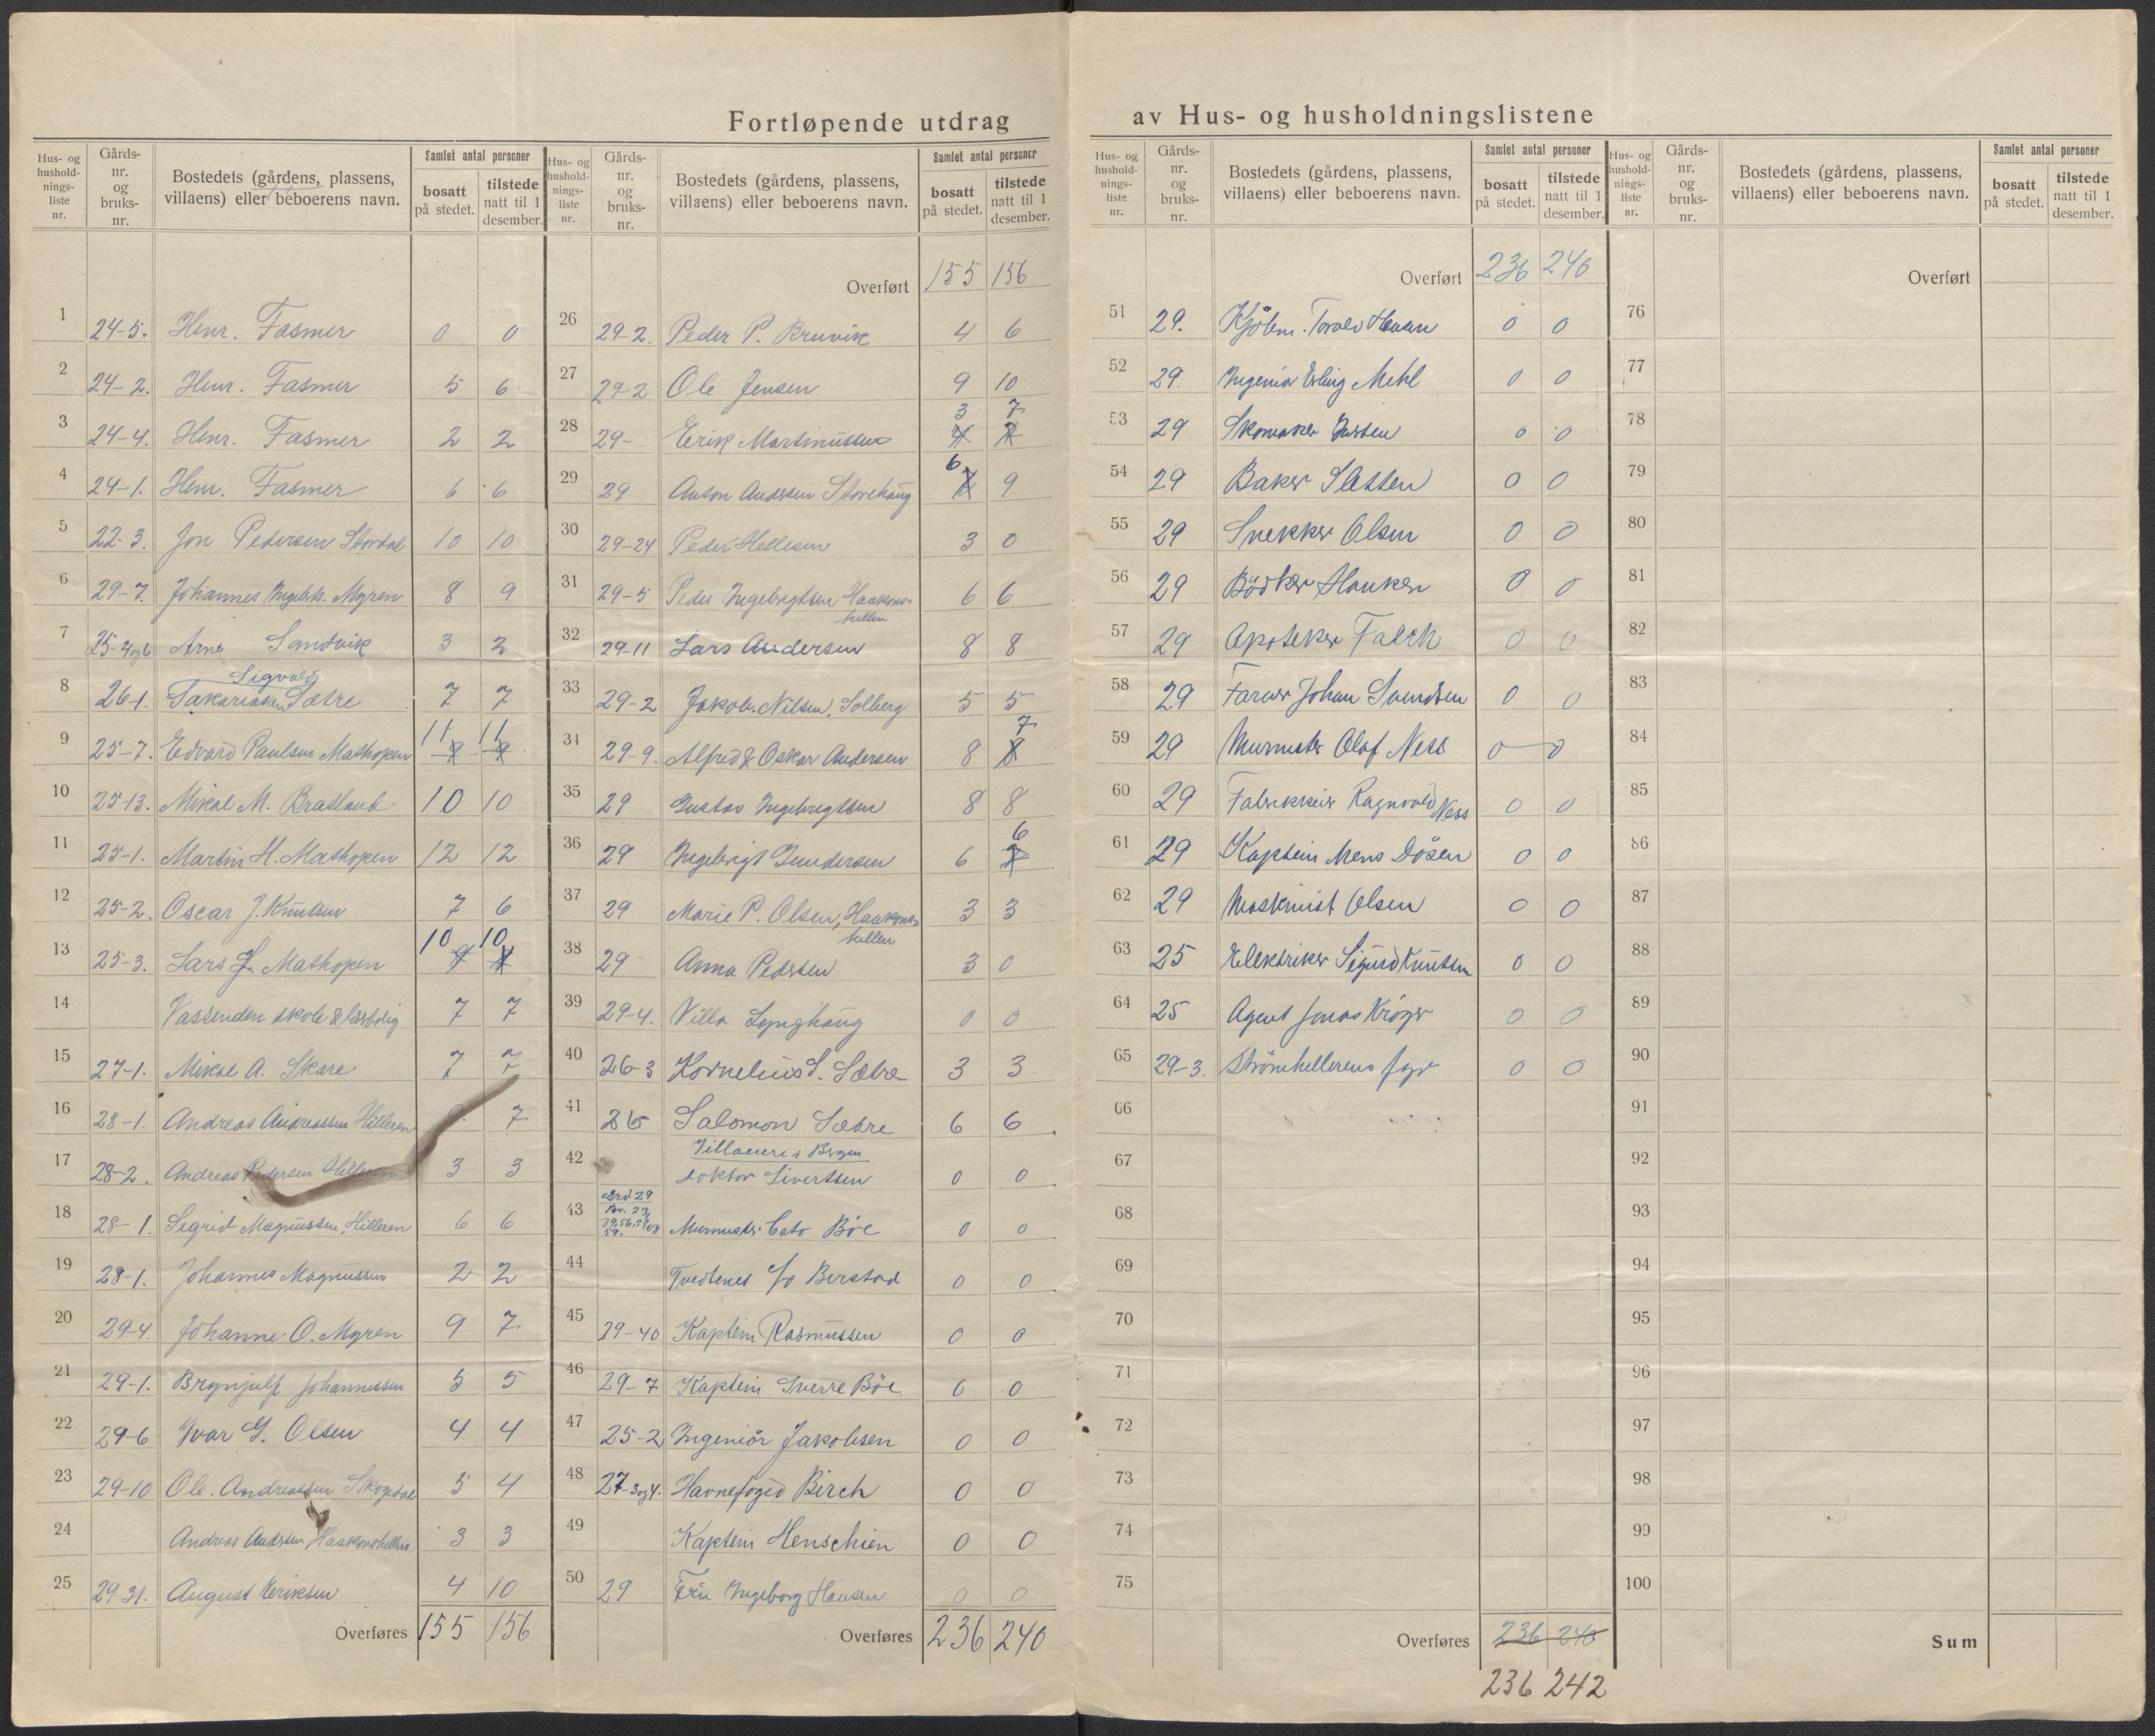 Fortløpende utdrag av Hus- og husholdningslistene
Hus- og hushold- nings- liste nr. Gårds- nr. og bruks- nr. Bostedets (gårdens, plassens, villaens) eller beboerens navn. Samlet antal personer bosatt på stedet. tilstede natt til 1 desember.
1 24-5. Henr. Fasmer 0 0
2 24-2. Henr. Fasmer 5 6
3 24-4. Henr. Fasmer 2 2
4 24-1. Henr. Fasmer 6 6
5 22-3. Jon Pedersen Stordal 10 10
6 29-7. Johannes Ingebr. Myren 8 9
7 25-4og6 Arne Sandvik 3 2
8 26-1. Sakariassen Sigvald Sætre 7 7
9 25-7. Edvard Paulsen Mathopen 11 11
10 25-13. Mikal M. Bratland 10 10
11 25-1. Martin H. Mathopen 12 12
12 25-2. Oscar J. Knutsen 7 6
13 25-3. Lars J. Mathopen 10 10
14 Vassenden skole & 7 7
15 27-1. Mikal A. Skare 7 7
16 28-1. Andreas Andreassen Hilleren 7
17 28-2. Andreas Pedersen Hilleren 3 3
18 28-1. Sigrid Magnussen, Hilleren 6 6
19 28-1. Johannes Magnussen 2 2
20 29-4. Johanne O. Myren 9 7
21 29-1. Brynjulf Johannessen 5 5
22 29-6 Ivar G. Olsen 4 4
23 29-10 Ole Andreassen Skogedal 5 4
24 Andreas Andersen, Haakonshellen 3 3
25 29-31. August Eriksen 4 10
Overføres 155 156
Hus- og hushold- nings- liste nr. Gårds- nr. og bruks- nr. Bostedets (gårdens, plassens, villaens) eller beboerens navn. Samlet antal personer bosatt på stedet. tilstede natt til 1 desember.
Overført 155 156
26 29-2. Peder P. Bruvik 4 6
27 29-2 Ole Jensen 9 10
28 29- Erik Martinussen 3 7
29 29 Anton Andersen Storehaug 6 9
30 29-24 Peder Hellesen 3 0
31 29-5 Peder Ingebrigtsen Haakons-
hellen 6 6
32 29-11 Lars Andersen 8 8
33 29-2 Jakob Nilsen, Solberg 5 5
34 29-9. Alfred & Oskar Andersen 8 7
35 29 Gustav Ingebrigtsen 8 8
36 29 Ingebrigt Gundersen 6 6
37 29 Marie P. Olsen, Haakons-
hellen 3 3
38 29 Anna Pedersen 3 0
39 29-4. Villa Lynghaug 0 0
40 26-3 Kornelius S. Sætre 3 3
41 26 Salomon Sætre 6 6
Villaeiere i Bergen
42 Doktor Sivertsen 0 0
43 Murmester Cato Böe 0 0
44 Tvedtenes c/o Berstad 0 0
45 29-40 Kaptein Rasmussen 0 0
46 29-7 Kaptein Sverre Böe 0 0
47 25-2 Ingeniör Jakobsen 0 0
48 27-3og4. Havnefoged Birch 0 0
49 Kaptein Henschien 0 0
50 29 Fru Ingeborg Hansen 0 0
Overføres 236 240
Hus- og hushold- nings- liste nr. Gårds- nr. og bruks- nr. Bostedets (gårdens, plassens, villaens) eller beboerens navn. Samlet antal personer bosatt på stedet. tilstede natt til 1 desember.
Overført 236 240
51 29. Kjöbm. 0 0
52 29. Ingeniör Erling Mehl 0 0
53 29 Skomaker 0 0
54 29 Baker Sletten 0 0
55 29 Snekker Olsen 0 0
56 29 Bödker Hauken 0 0
57 29 Apoteker Falch 0 0
58 29 Farver Johan Svendsen 0 0
59 29 Murmester Olaf Ness 0 0
60 29 Fabrikkeier Ragnvald Ness 0 0
61 29 Kaptein Mens Dösen 0 0
62 29 Maskinist Olsen 0 0
63 25 Elektriker Sigurd Knutsen 0 0
64 25 Agent Jonas Kröger 0 0
65 29-3. Strömhellerens fyr 0 0
66
67
68
69
70
71
72
73
74
75
Overføres 236 240
236 242
Hus- og hushold- nings- liste nr. Gårds- nr. og bruks- nr. Bostedets (gårdens, plassens, villaens) eller beboerens navn. Samlet antal personer bosatt på stedet. tilstede natt til 1 desember.
Overført
76
77
78
79
80
81
82
83
84
85
86
87
88
89
90
91
92
93
94
95
96
97
98
99
100
Sum